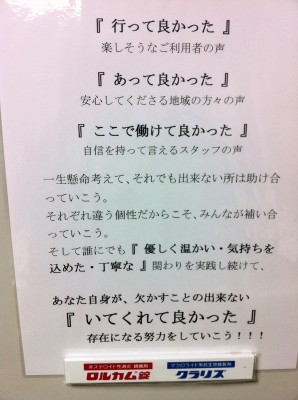 『 行って良かった 』
楽しそうなご利用者の声
『 あって良かった 』
安心してくださる地域の方々の声
『 ここで働けて良かった 』
自信を持って言えるスタッフの声
一生懸命考えて、それでも出来ない所は助け合
っていこう。
それぞれ違う個性だからこそ、みんなが補い合
っていこう。
そして誰にでも『 優しく温かい・気持ちを
込めた・丁寧な 』関わりを実践し続けて、
あなた自身が、欠かすことの出来ない
『 いてくれて良かった 』
存在になる努力をしていこう！！！
非ステロイド性消炎・鎮痛剤
ロルカム錠
マクロライド系抗生物質製剤
クラリス